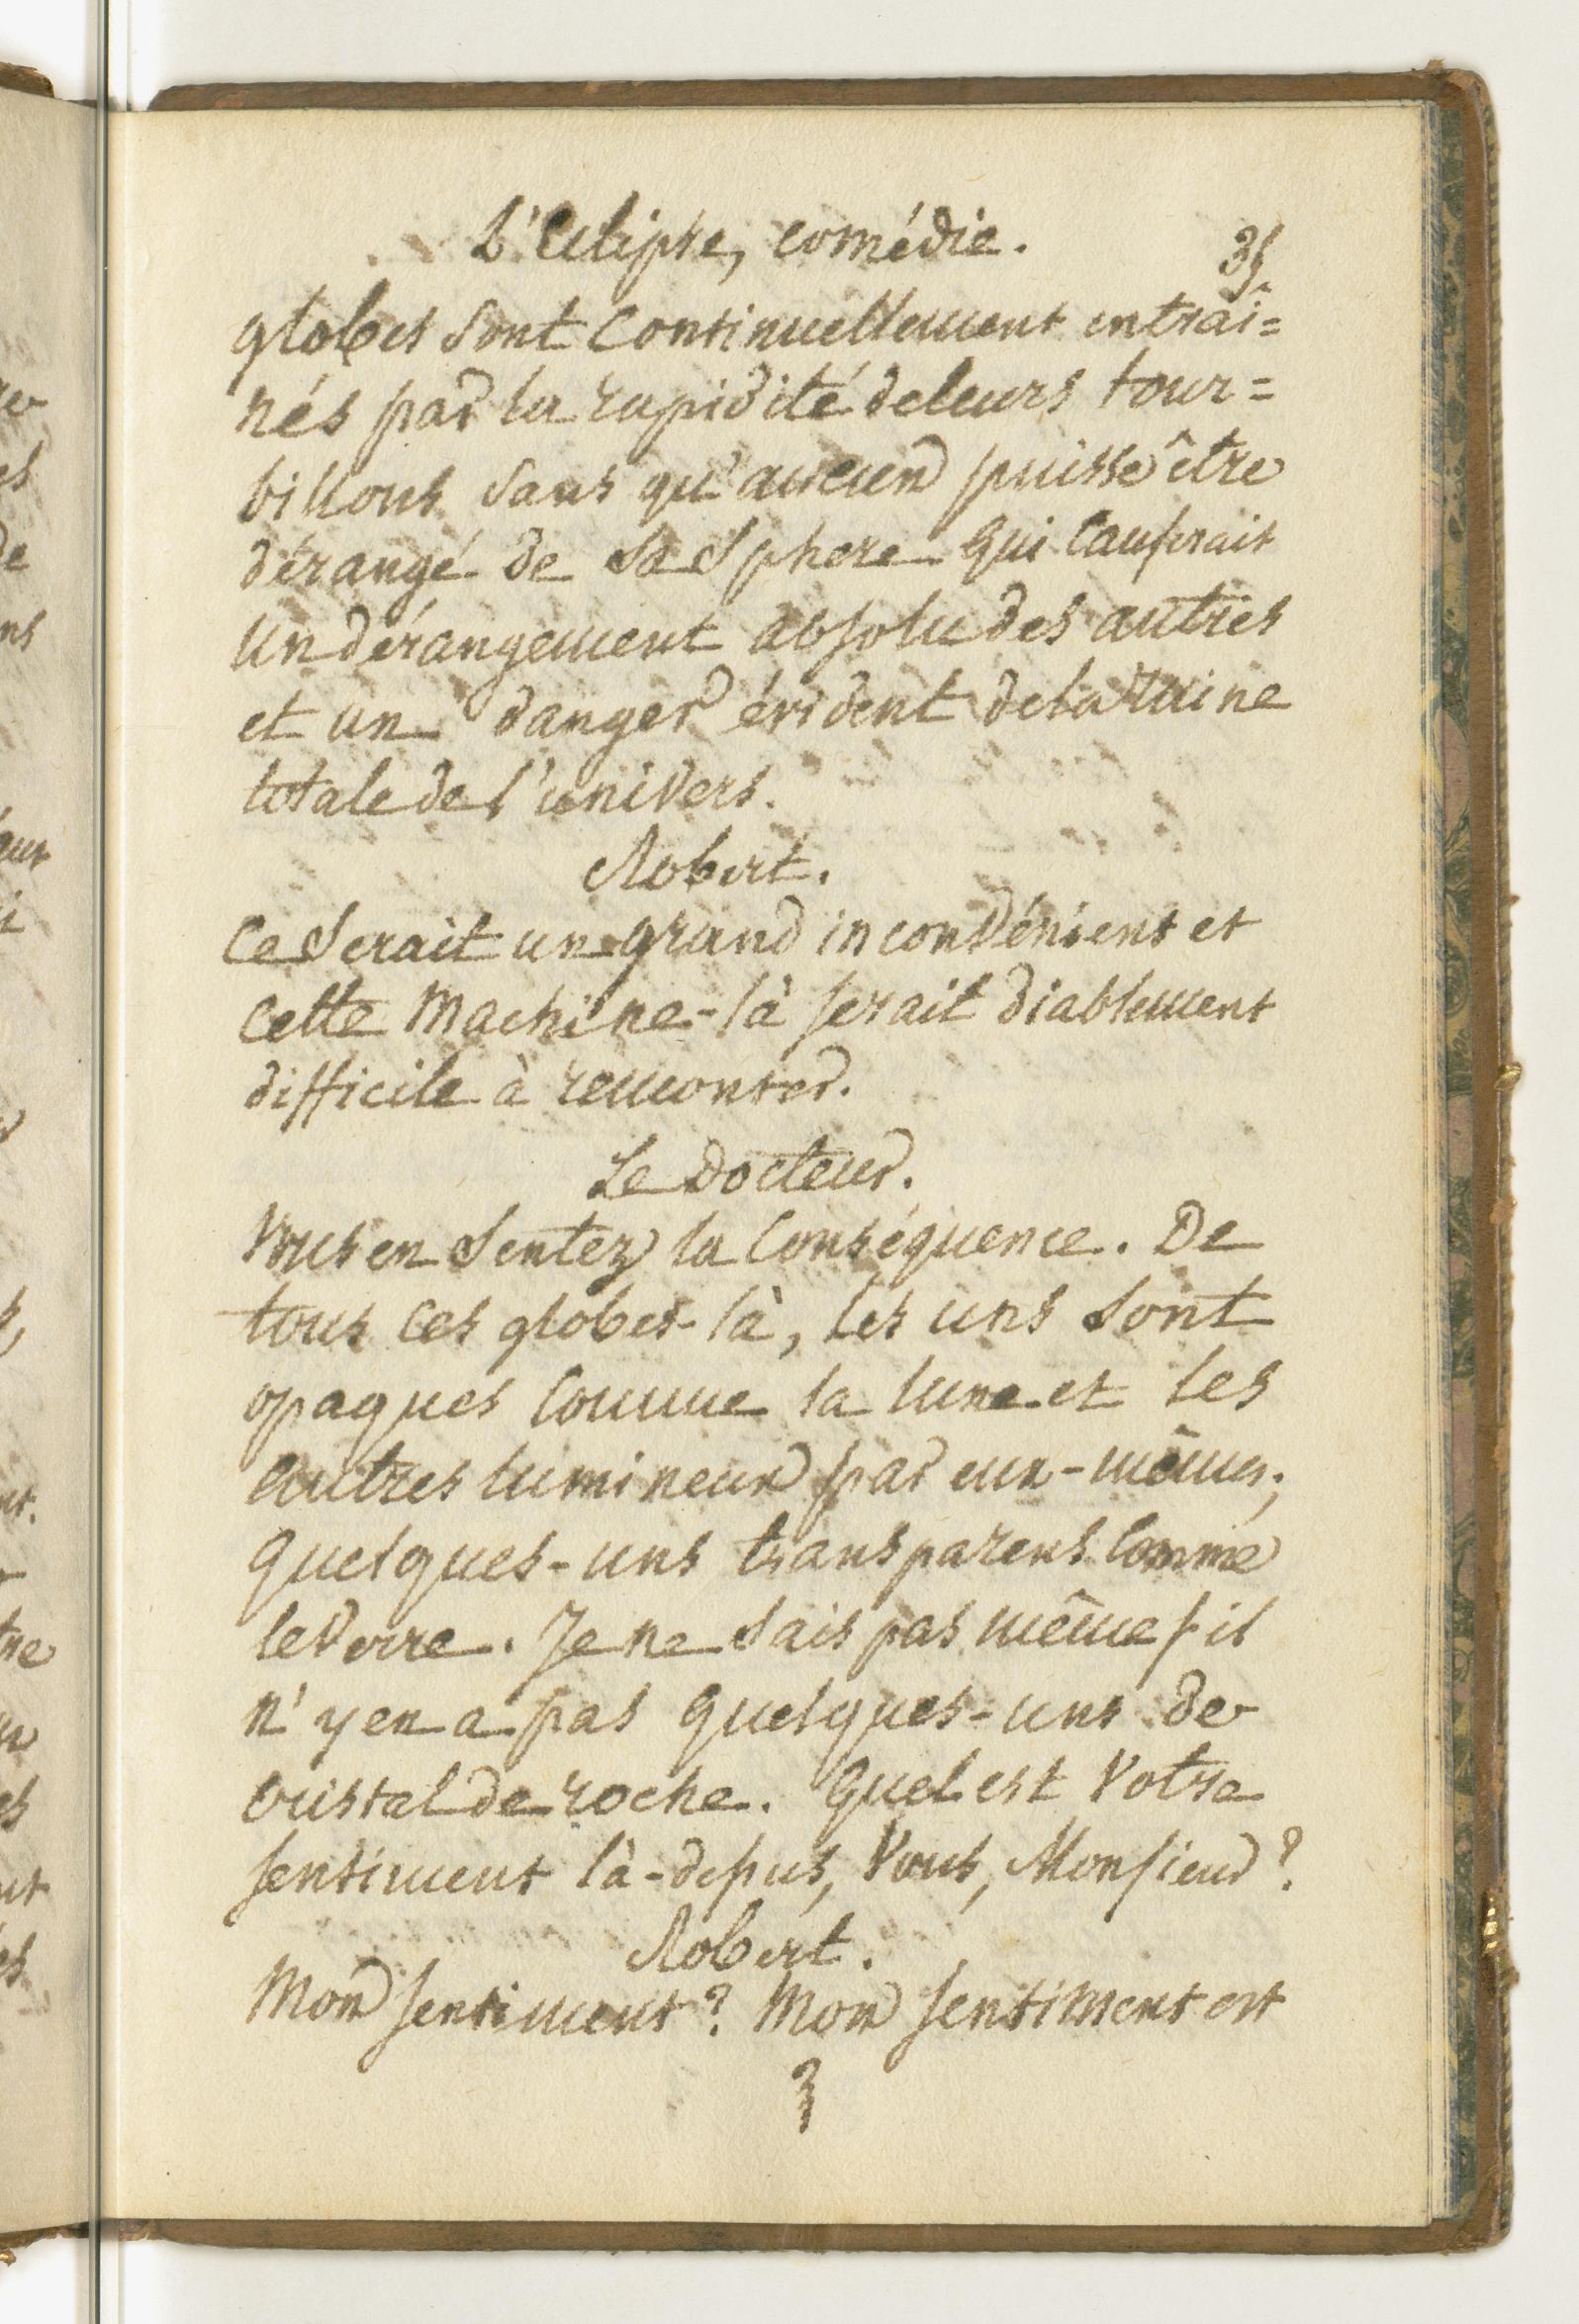 L'Eclipse, comédie.
35.
globes sont continuellement entrai=
nés par la rapidité de leurs tour=
billons sans qu'aucun puisse être
dérangé de sa sphere qui causerait
un dérangement absolu des autres
et un danger évident de la ruine
totale de l'univers.
Robert.
Ce serait un grand inconvénient et
cette machine-là serait diablement
difficile à remonter.
Le Docteur.
Vous en sentez la conséquence. De
tous ces globes-là, les uns sont
opaques comme la lune et les
autres lumineux par eux-mêmes;
quelques-uns transparens comme
le verre. Je ne sais pas même s'il
n'y en a pas quelques-uns de
cristal de roche. Quel est votre
sentiment là-dessus, vous, Monsieur?
Robert.
Mon sentiment? Mon sentiment est